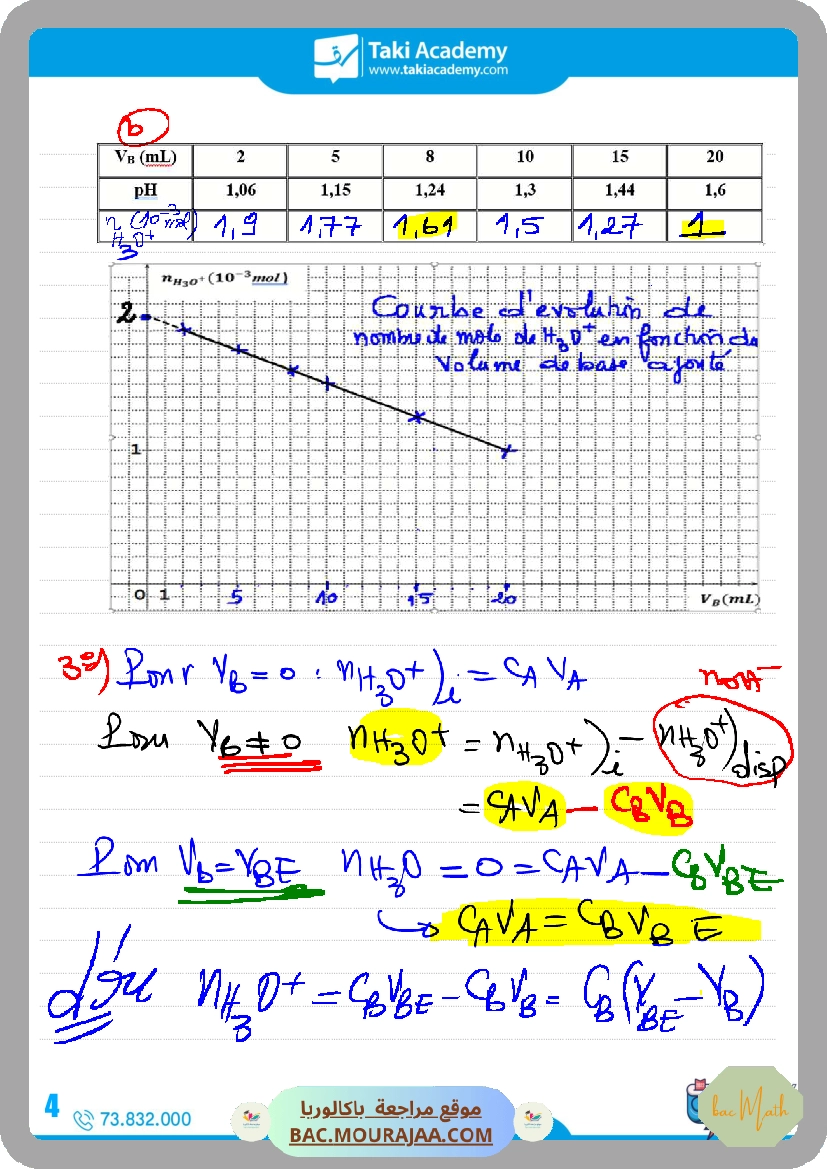 Taki Academy
www.takiacademy.com
b
V_B (mL) 2 5 8 10 15 20
pH 1,06 1,15 1,24 1,3 1,44 1,6
n H₃O⁺ (10⁻³ mol) 1,9 1,77 1,61 1,5 1,27 1
n_H₃O⁺ (10⁻³ mol)
Courbe d'evolution de
nombre de mole de H₃O⁺ en fonction du
volume de base ajouté
2
1
0 1 5 10 15 20 V_B (mL)
3°) Pour V_B = 0 : n_H₃O⁺)i = C_A V_A
n_OH⁻
Pour V_B ≠ 0 n_H₃O⁺ = n_H₃O⁺)i - n_H₃O⁺)disp
= C_A V_A - C_B V_B
Pour V_b = V_BE n_H₃O = 0 = C_A V_A - C_B V_BE
↪ C_A V_A = C_B V_B E
d'où n_H₃O⁺ = C_B V_BE - C_B V_B = C_B (V_BE - V_B)
4
73.832.000
موقع مراجعة باكالوريا
BAC.MOURAJAA.COM
bac Math